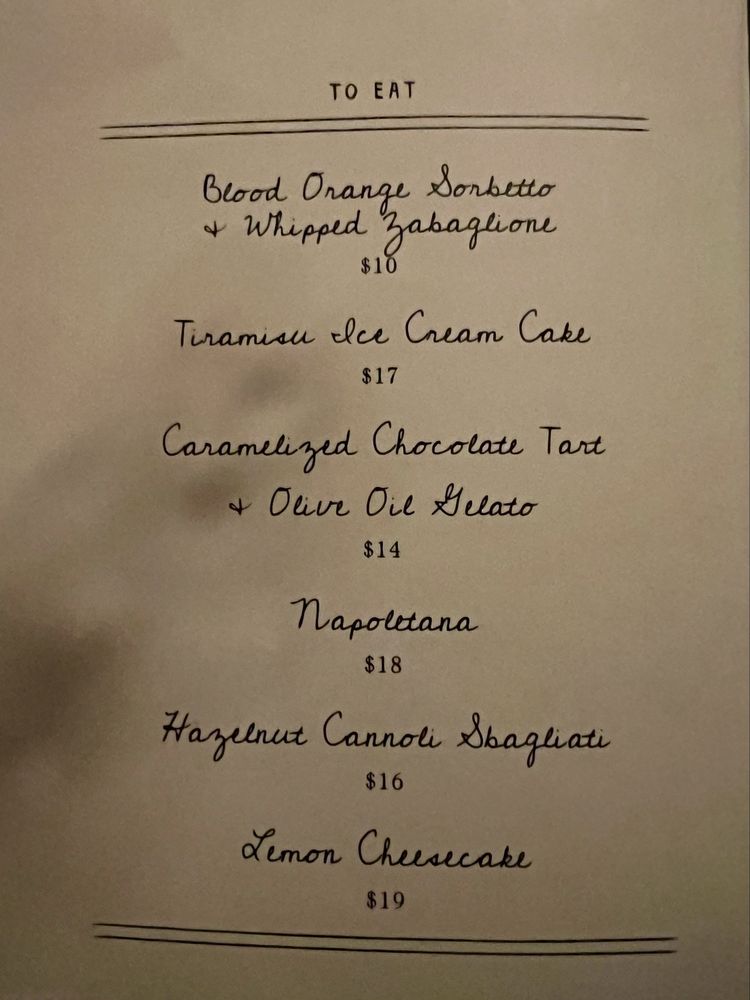 TO EAT
Blood Orange Sorbetto
& Whipped Zabaglione
$10
Tiramisu Ice Cream Cake
$17
Caramelized Chocolate Tart
& Olive Oil Gelato
$14
Napoletana
$18
Hazelnut Cannoli Sbagliati
$16
Lemon Cheesecake
$19